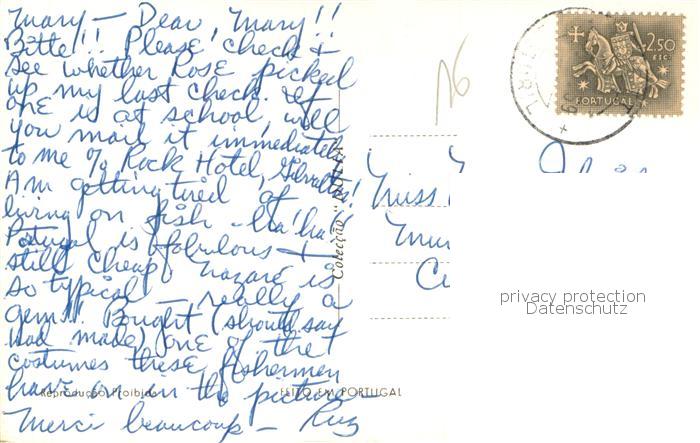 Mary — Dear, Mary!!
Bitte!! Please check &
see whether Rose picked
up my last check. If
one is at school, will
you mail it immediately
to me % Rock Hotel, Gibraltar!
Am getting tired of
living on fish - ha'ha!!
Portugal is fabulous - &
still cheap! Nazaré is
so typical — really a
gem!!! Bought (should say
had made) one of the
costumes these fishermen
have on in the picture —
Merci beaucoup —
Reprodução Proibida
FEITO EM PORTUGAL
Colecção
2$50
ESC.
PORTUGAL
Miss
privacy protection
Datenschutz